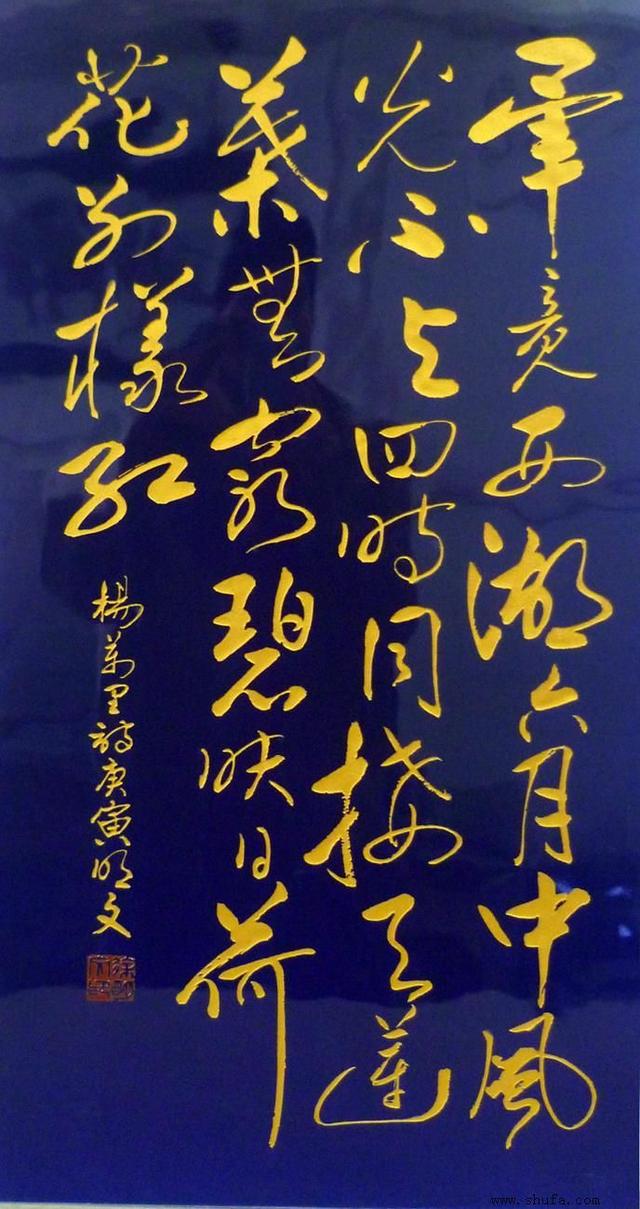 畢竟西湖六月中風
光不与四時同接天蓮
葉無窮碧映日荷
花別樣紅
楊萬里詩庚寅明文
www.shufa.com